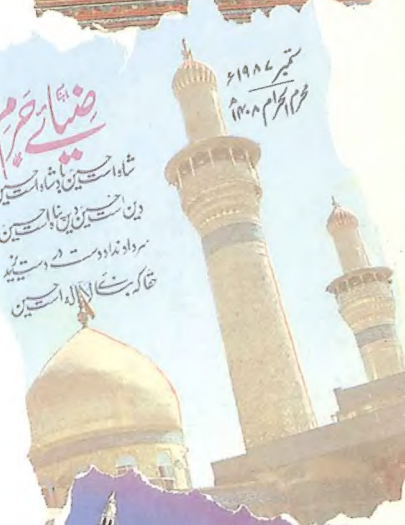 ستمبر ۱۹۸۷ء
محرم الحرام ۱۴۰۸ھ
ضیائے حرم
شاہ است حسین بادشاہ است حسین
دین است حسین دیں پناہ است حسین
سر داد نداد دست در دست یزید
حقا کہ بنائے لا الہ است حسین